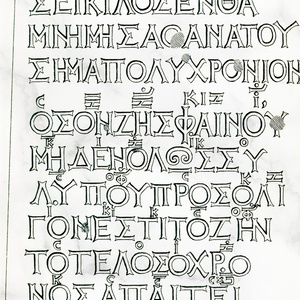 ΣΕΙΚΙΛΟΣΕΝΘΑ
ΜΝΗΜΗΣΑΘΑΝΑΤΟΥ
ΣΗΜΑΠΟΛΥΧΡΟΝΙΟΝ
C Ζ Ζ ΚΙΖ Ι
ΟΣΟΝΖΗΣΦΑΙΝΟΥ
ΜΗΔΕΝΟΛΩΣΣΥ
ΛΥΠΟΥΠΡΟΣΟΛΙ
ΓΟΝΕΣΤΙΤΟΖΗΝ
ΤΟΤΕΛΟΣΟΧΡΟ
ΝΟΣΑΠΑΙΤΕΙ